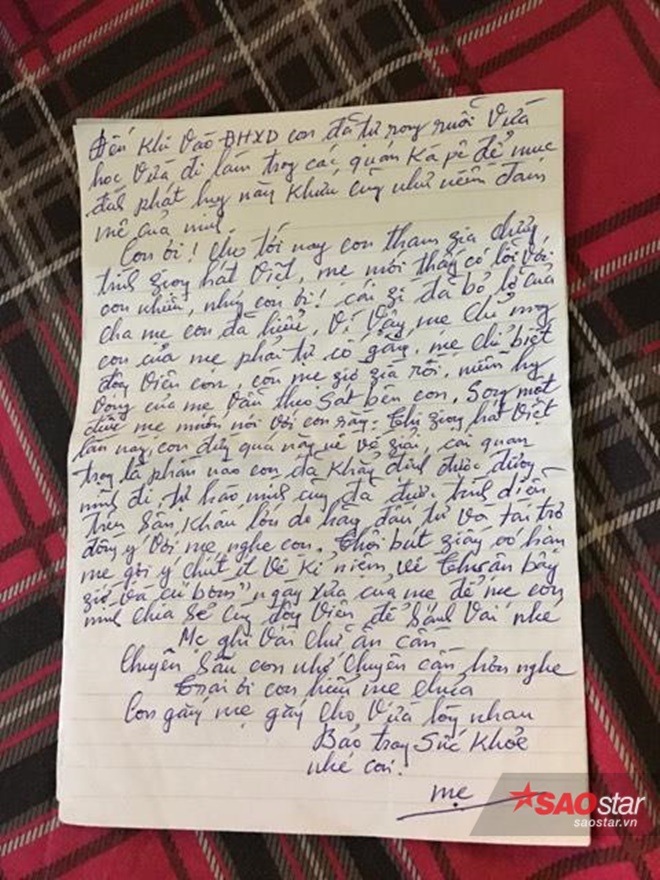 Đến khi vào ĐHXD con đã tự rong ruổi vừa
học vừa đi làm trog các quán Ka pê để mục
đích phát huy năg khiếu cũg như niềm đam
mê của mình
Con ơi! cho tới nay con tham gia chươg
trìh giọg hát việt, mẹ mới thấy có lỗi với
con nhiều, nhưg con ơi! cái gì đã bỏ lỡ của
cha mẹ con đã hiểu, vì vậy mẹ chỉ mog
con của mẹ phải tự cố gắg, mẹ chỉ biết
độg viên con, còn mẹ giờ già rồi, niềm hy
vọg của mẹ vẫn theo sát bên con. Sog một
điều mẹ muốn nói với con rằg: thi giọg hát việt
lần này, con đừg quá nặg nề về giải, cái quan
trọg là phần nào con đã khẳg địh được đườg
mìh đi, tự hào mìh cũg đã được trìh diễn
trên sân khấu lớn do hãg đầu tư và tài trợ
đồg ý với mẹ nghe con. Thôi bút giấy có hạn
mẹ gợi ý chút ít về kỉ niệm, về Thuận bây
giờ và cu bom" ngày xưa của mẹ để mẹ con
mìh chia sẻ cũg độg viên để sáh vai nhé
Mẹ ghi vài chữ ân cần
Chuyên sâu con nhớ chuyên cần hơn nghe
Trai ơi con hiểu mẹ chưa
Con gắg mẹ gắg cho vừa lòg nhau
Bảo trọg sức khỏe
nhé con.
mẹ
SAOstar
saostar.vn